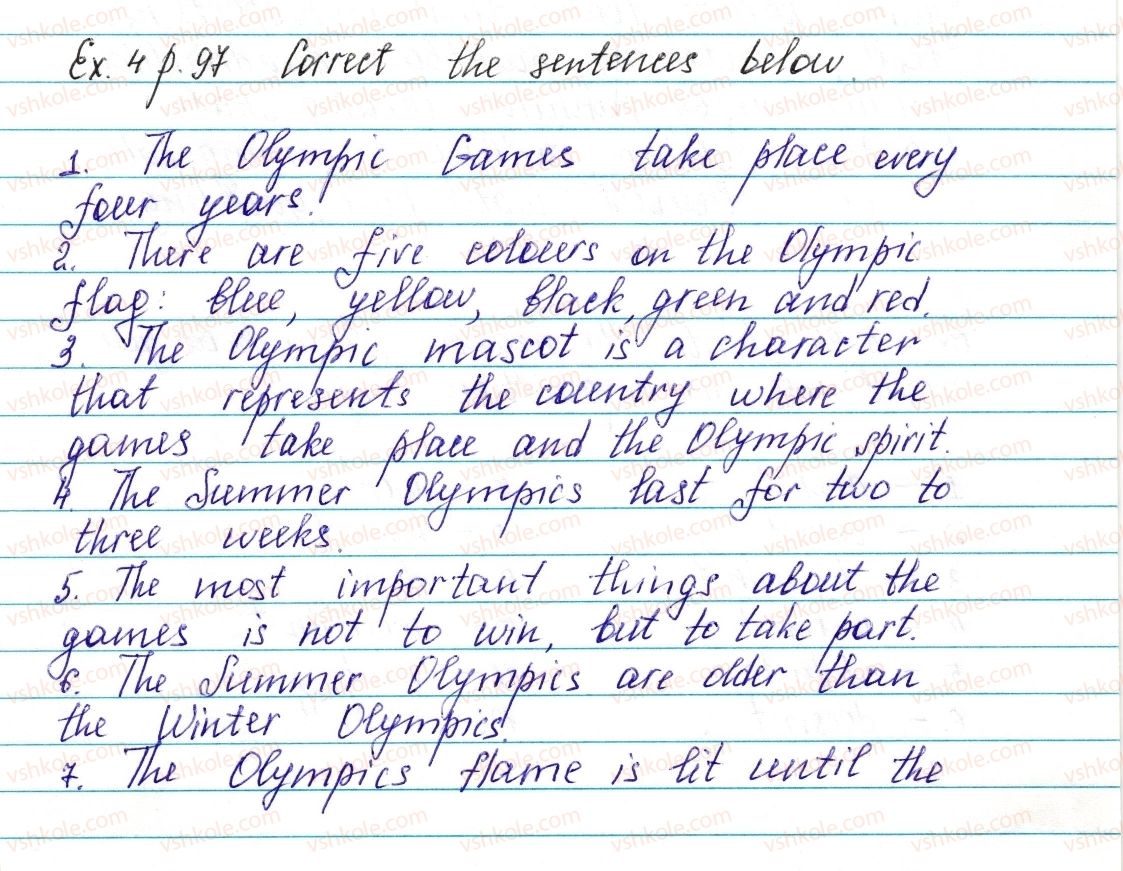 Ex. 4 p. 97 Correct the sentences below.
1. The Olympic Games take place every
four years.
2. There are five colours on the Olympic
flag: blue, yellow, black, green and red.
3. The Olympic mascot is a character
that represents the country where the
games take place and the Olympic spirit.
4. The Summer Olympics last for two to
three weeks.
5. The most important things about the
games is not to win, but to take part.
6. The Summer Olympics are older than
the Winter Olympics.
7. The Olympics flame is lit until the